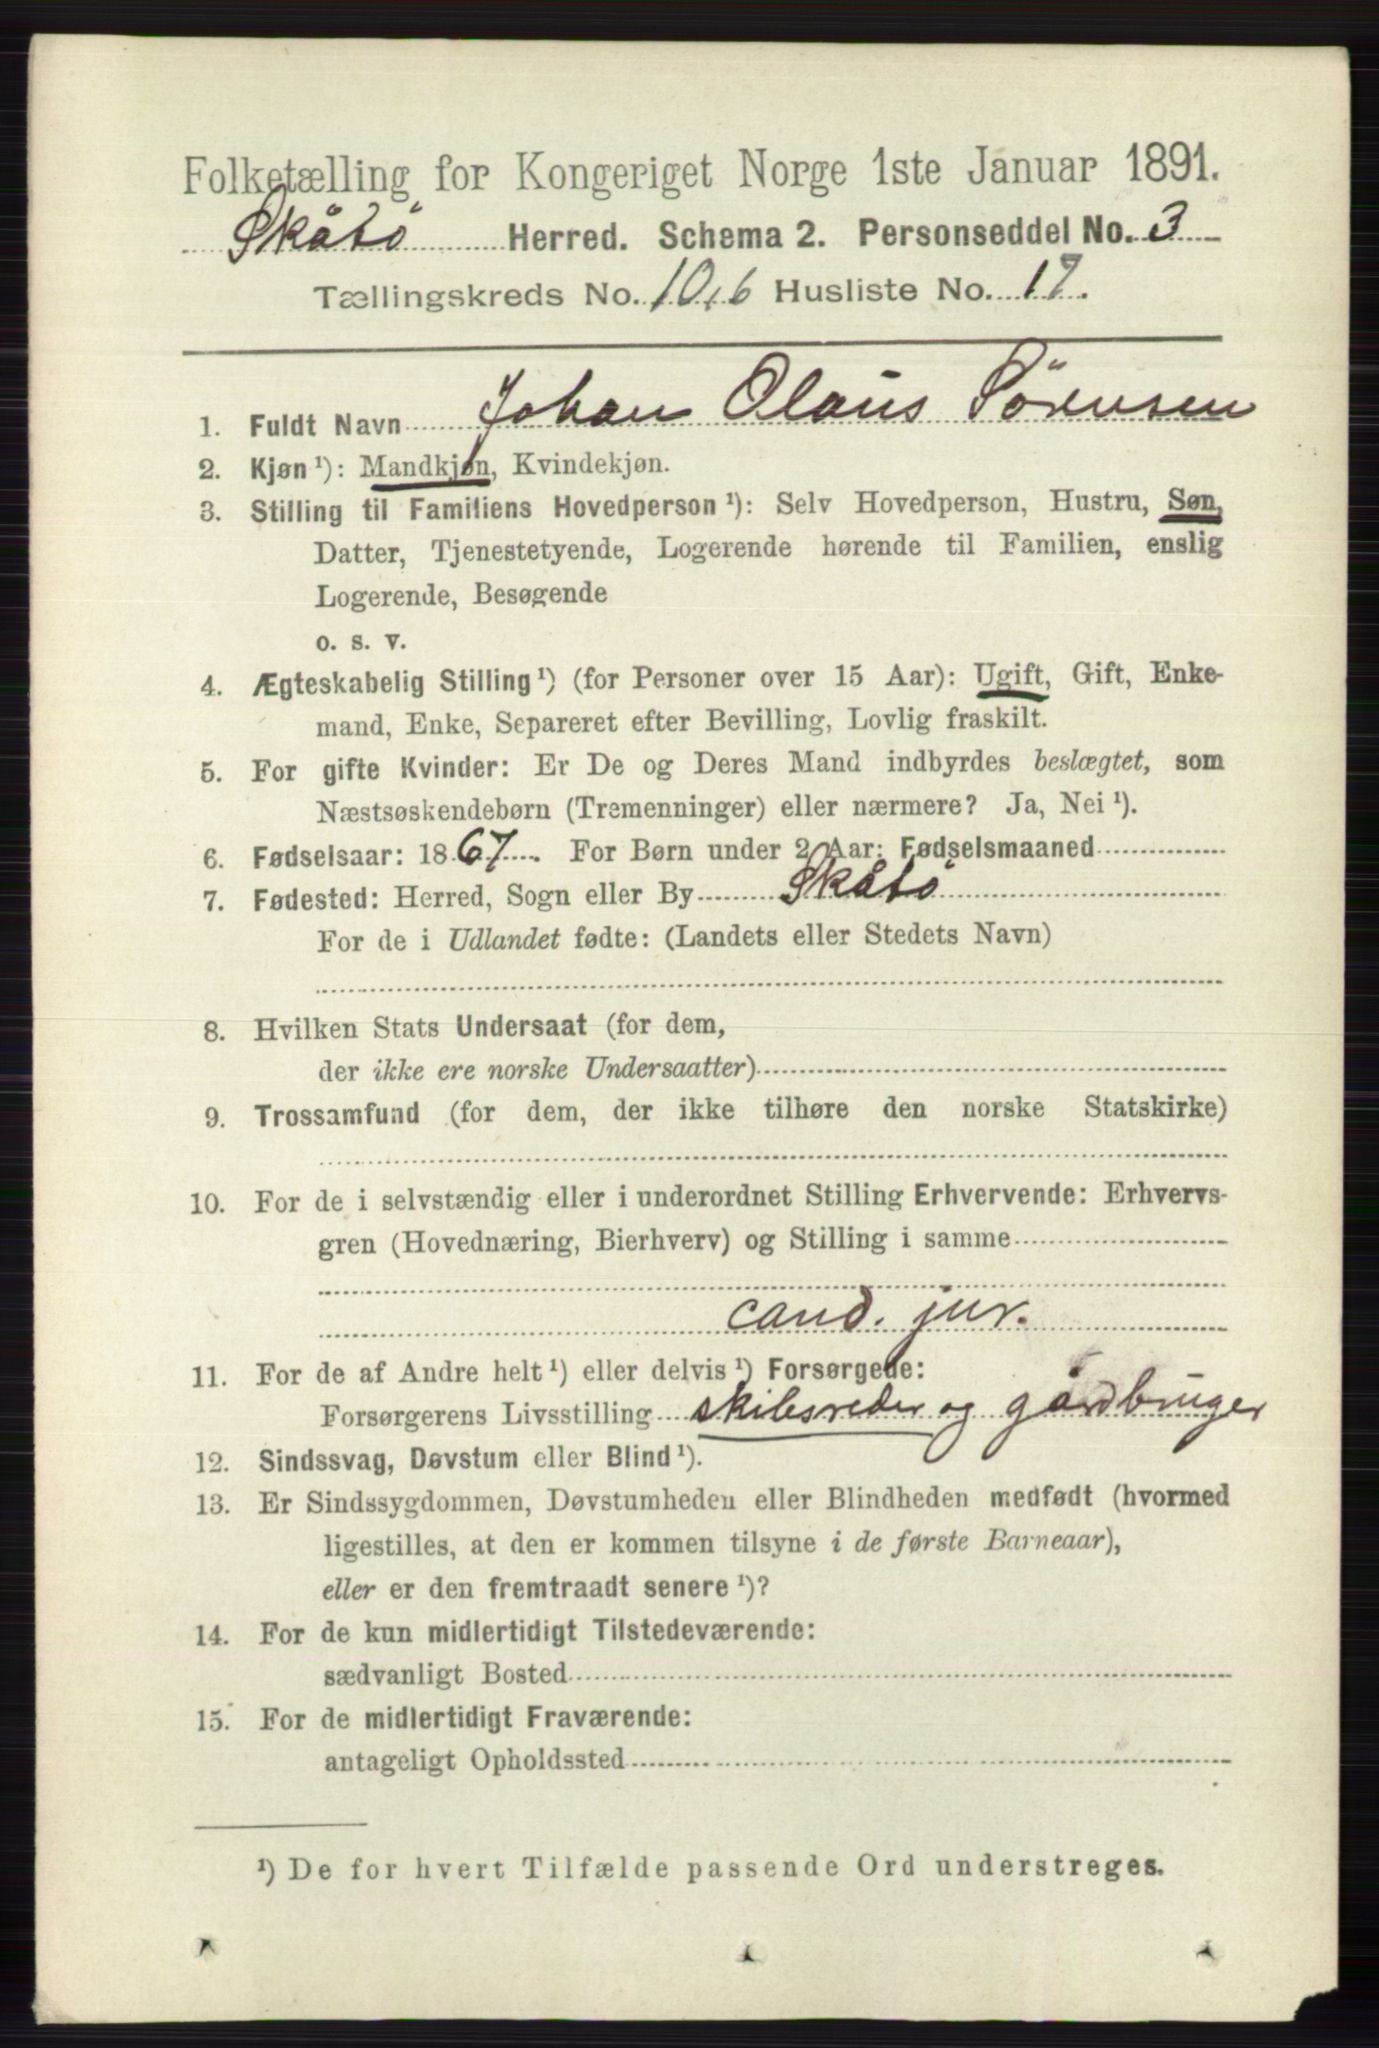 Folketælling for Kongeriget Norge 1ste Januar 1891.
Skåtö Herred. Schema 2. Personseddel No. 3
Tællingskreds No. 10,6 Husliste No. 17.
1. Fuldt Navn Johan Olaus Sörensen
2. Kjøn ¹): Mandkjøn, Kvindekjøn.
3. Stilling til Familiens Hovedperson ¹): Selv Hovedperson, Hustru, Søn,
Datter, Tjenestetyende, Logerende hørende til Familien, enslig
Logerende, Besøgende
o. s. v.
4. Ægteskabelig Stilling ¹) (for Personer over 15 Aar): Ugift, Gift, Enke-
mand, Enke, Separeret efter Bevilling, Lovlig fraskilt.
5. For gifte Kvinder: Er De og Deres Mand indbyrdes beslægtet, som
Næstsøskendebørn (Tremenninger) eller nærmere? Ja, Nei ¹).
6. Fødselsaar: 1867. For Børn under 2 Aar: Fødselsmaaned
7. Fødested: Herred, Sogn eller By Skåtö
For de i Udlandet fødte: (Landets eller Stedets Navn)
8. Hvilken Stats Undersaat (for dem,
der ikke ere norske Undersaatter)
9. Trossamfund (for dem, der ikke tilhøre den norske Statskirke)
10. For de i selvstændig eller i underordnet Stilling Erhvervende: Erhvervs-
gren (Hovednæring, Bierhverv) og Stilling i samme
cand. jur.
11. For de af Andre helt ¹) eller delvis ¹) Forsørgede:
Forsørgerens Livsstilling skibsreder og gårdbruger
12. Sindssvag, Døvstum eller Blind ¹).
13. Er Sindssygdommen, Døvstumheden eller Blindheden medfødt (hvormed
ligestilles, at den er kommen tilsyne i de første Barneaar),
eller er den fremtraadt senere ¹)?
14. For de kun midlertidigt Tilstedeværende:
sædvanligt Bosted
15. For de midlertidigt Fraværende:
antageligt Opholdssted
¹) De for hvert Tilfælde passende Ord understreges.